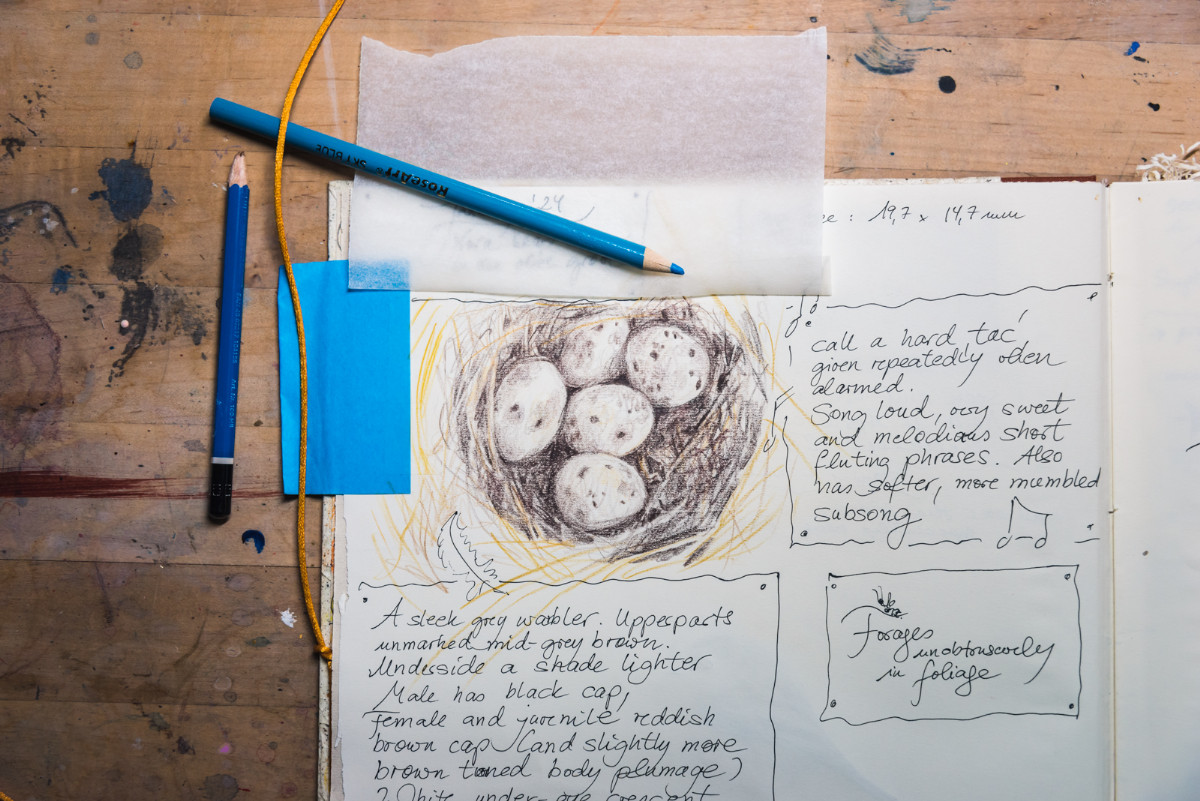 RoseArt® SKY BLUE
'24
: 19,7 x 14,7 mm
call a hard 'tac'
given repeatedly when
alarmed.
Song loud, very sweet
and melodious short
fluting phrases. Also
has softer, more mumbled
subsong
A sleek grey warbler. Upperparts
unmarked mid-grey brown.
Underside a shade lighter
Male has black cap,
female and juvenile reddish
brown cap (and slightly more
brown toned body plumage)
White under-eye crescent
Forages
unobtrusively
in foliage